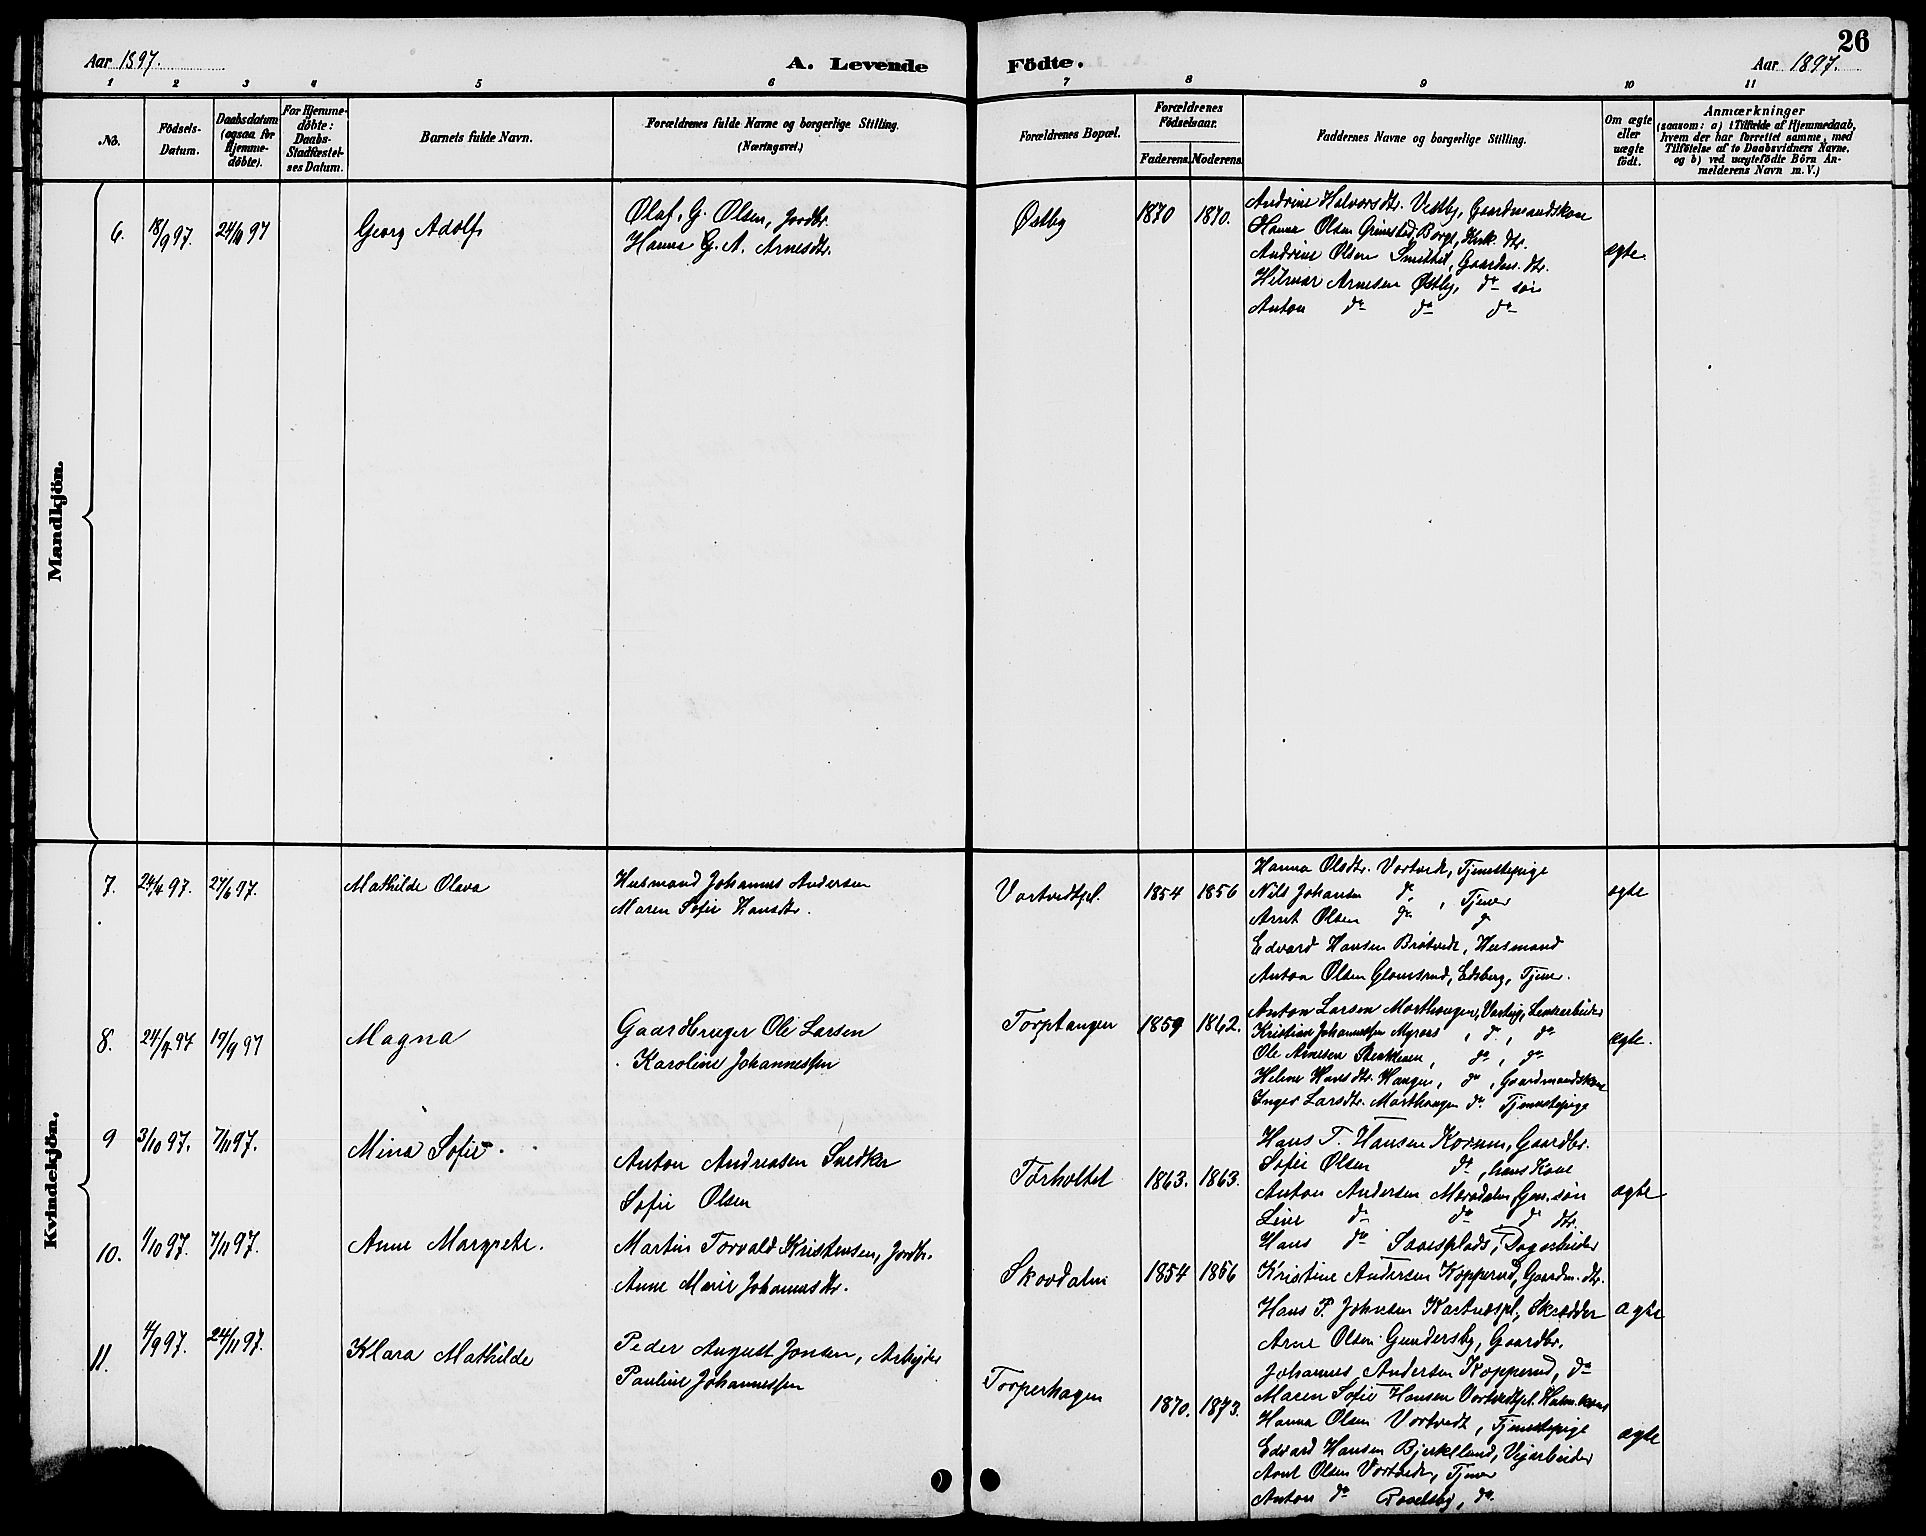 26
Aar 1897.
A. Levende
Födte.
Aar 1897.
1 2 3 4 5 6 7 8 9 10 11
No.
Födsels-Datum.
Daabsdatum (ogsaa for Hjemme-döbte).
For Hjemme-döbte: Daabs-Stadfæstel-ses Datum.
Barnets fulde Navn.
Forældrenes fulde Navne og borgerlige Stilling.
(Næringsvei.)
Forældrenes Bopæl.
Forældrenes Födselsaar.
Faderens. Moderens.
Faddernes Navne og borgerlige Stilling.
Om ægte eller uægte födt.
Anmærkninger
(saasom: a) i Tilfælde af Hjemmedaab,
hvem der har forrettet samme, med
Tilföielse af to Daabsvidners Navne,
og b) ved uægtefödte Börn An-
melderens Navn m. V.)
Mandkjön.
6. 18/9 97. 24/11 97 Georg Adolf
Olaf. G. Olsen, Jordbr.
Hanna G. A. Arnesdtr.
Østby 1870 1870.
Andrine Halvorsdtr. Vestby, Gaardmandskone
Hanna Olsen Grimsted, Borge, Kirk. dtr.
Andrine Olsen Smithel, Gaardm. dtr.
Hilmar Arnesen Østby, do søn
Anton do do do
ægte.
Kvindekjön.
7. 24/4 97. 27/6 97. Mathilde Olava
Husmand Johannes Andersen
Maren Sofie Hansdtr.
Vortvedtpl. 1854 1856
Hanna Olsdtr. Vortvedt, Tjenestepige
Nils Johansen do, Tjener
Arnt Olsen do do
Edvard Hansen Brøtvedt, Husmand
Anton Olsen Glomsrud, Edsberg, Tjener.
ægte
8. 24/7 97 19/9 97 Magna
Gaardbruger Ole Larsen
Karoline Johannessen
Torptangen 1859 1862.
Anton Larsen Morthaugen, Varteig, Lensearbeider
Kristine Johannessen Myraas, do, do
Ole Arnesen, do, do
Helene Hansdtr. Haugen, do, Gaardmandskone
Inger Larsdtr. Morthaugen do. Tjenestepige
ægte.
9 3/10 97. 7/11 97. Mina Sofie
Anton Andreasen Snedker
Sofie Olsen
Torholtet 1863. 1863.
Hans T. Hansen Kornm, Gaardbr.
Sofie Olsen do, hans Kone
Anton Andersen Morodalen, Gm. søn
Line do do do dtr.
Hans do Saxesplads, Dagarbeider
ægte
10. 1/10 97. 7/11 97. Anne Margrete.
Martin Torvald Kristensen, Jordbr.
Anne Marie Johannesdtr.
Skovdalen 1854 1856
Kristine Andersen Kopperud, Gaardm. dtr.
Hans P. Johnsen Kartnæspl., Skrædder
Arne Olsen Gundersby, Gaardbr.
Johannes Andersen Kopperud, do
ægte
11. 4/9 97. 24/11 97. Klara Mathilde
Peder August Jonsen, Arbejder
Pauline Johannessen
Torperhagen 1870. 1873.
Maren Sofie Hansen Vortvedtpl. Husm. kone
Hanna Olsen Vortvedt, Tjenestepige
Edvard Hansen Bjerkelund, Vejarbeider
Arnt Olsen Vortvedt, Tjener
Anton do Roselsby, do.
ægte